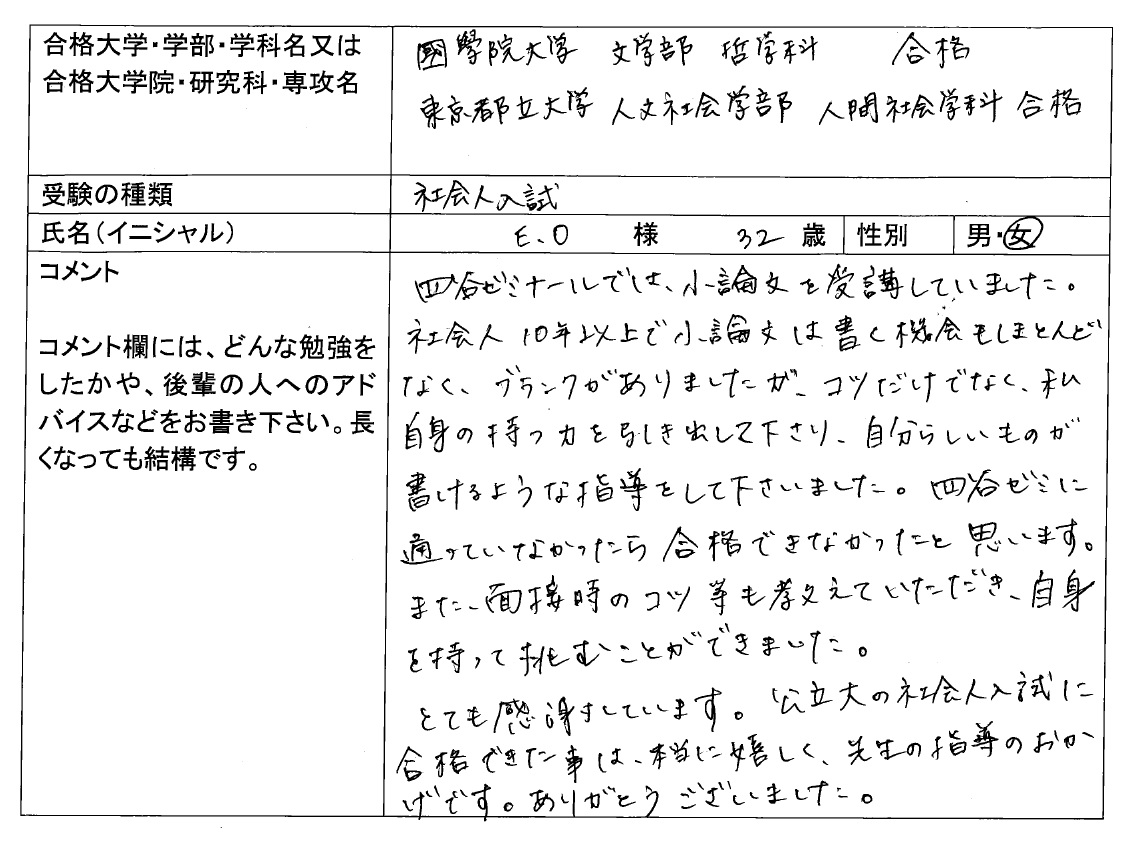 合格大学・学部・学科名又は
合格大学院・研究科・専攻名
國學院大学 文学部 哲学科 合格
東京都立大学 人文社会学部 人間社会学科 合格
受験の種類
社会人入試
氏名(イニシャル)
E.O 様 32 歳 性別 男・女
コメント
コメント欄には、どんな勉強を
したかや、後輩の人へのアド
バイスなどをお書き下さい。長
くなっても結構です。
四谷ゼミナールでは、小論文を受講していました。
社会人10年以上で小論文は書く機会もほとんど
なく、ブランクがありましたが、コツだけでなく、私
自身の持つ力を引き出して下さり、自分らしいものが
書けるような指導をして下さいました。四谷ゼミに
通っていなかったら合格できなかったと思います。
また、面接時のコツ等も教えていただき、自身
を持って挑むことができました。
とても感謝しています。公立大の社会人入試に
合格できた事は、本当に嬉しく、先生の指導のおか
げです。ありがとうございました。